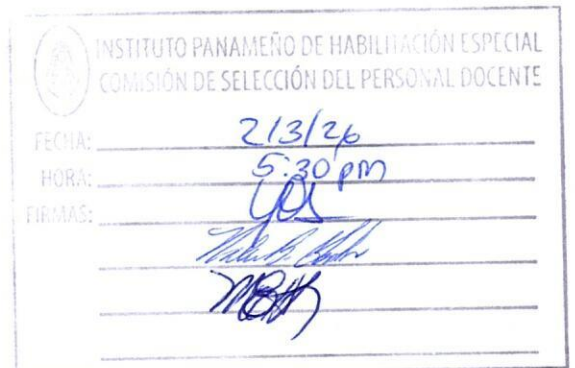 INSTITUTO PANAMEÑO DE HABILITACIÓN ESPECIAL
COMISIÓN DE SELECCIÓN DEL PERSONAL DOCENTE
FECHA: 2/3/26
HORA: 5:30 pm
FIRMAS: